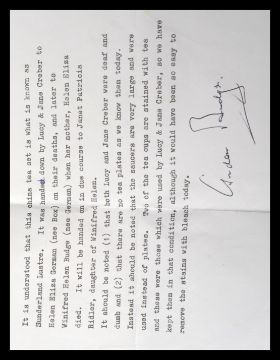 It is understood that this china tea set is what is known as
Sunderland Lustre. It was handed down by Lucy & Jane Creber to
Helen Eliza Gorman (nee Rox) on their deaths, and later to
Winifred Helen Budge (nee Gorman) when her mother, Helen Eliza
died. it will be handed on in due course to Janet Patricia
Ridler, daughter of Winifred Helen.
It should be noted (1) that both Lucy and Jane Creber were deaf and
dumb and (2) that there are no tea plates as we know then today.
Instead it should be noted that the saucers are very large and were
used instead of plates. Two of the tea cups are stained with tea
and these were those which were used by Lucy & Jane Creber, so we have
kept them in that condition, although it would have been so easy to
remove the stains with bleach today.